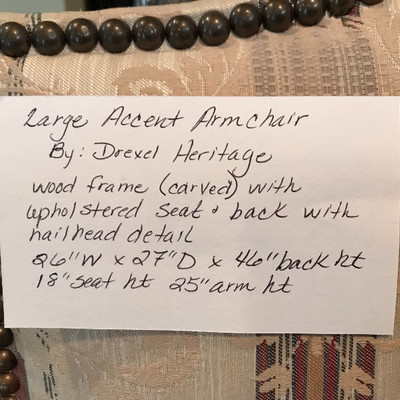 Large Accent Armchair
By: Drexel Heritage
wood frame (carved) with
upholstered seat & back with
nailhead detail
26"W x 27"D x 46" back ht
18" seat ht 25" arm ht